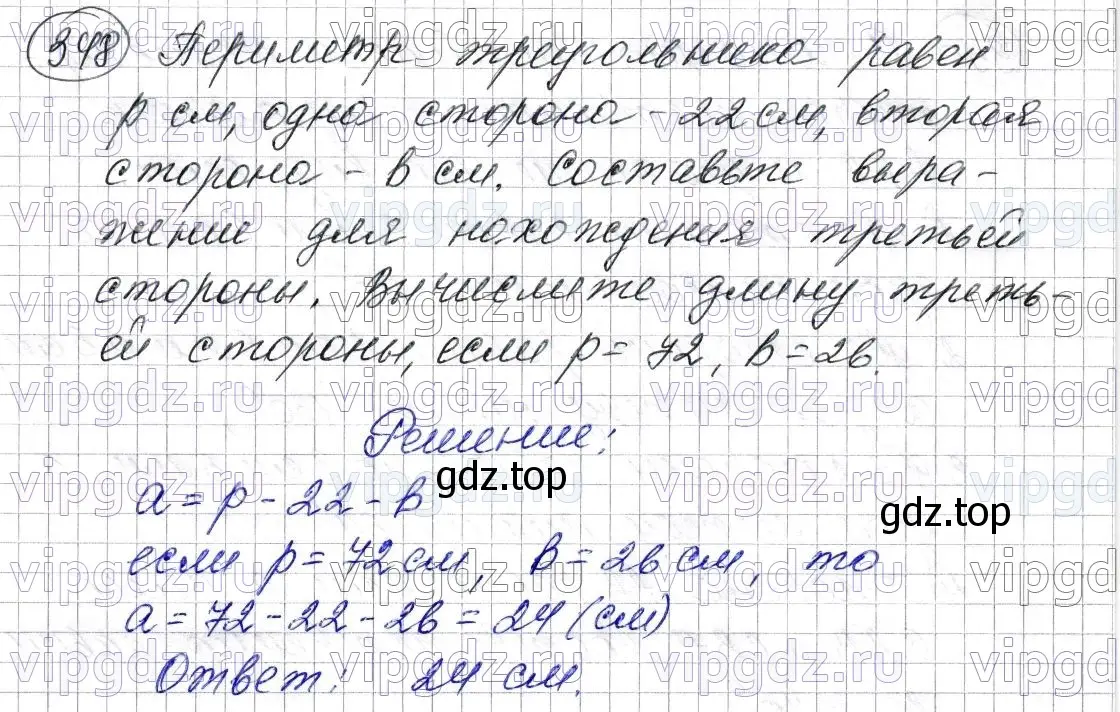 348 Периметр треугольника равен
p см, одна сторона - 22 см, вторая
сторона - b см. Составьте выра-
жение для нахождения третьей
стороны. Вычислите длину треть-
ей стороны, если p = 72, b = 26.
Решение:
a = p - 22 - b
если p = 72 см, b = 26 см, то
a = 72 - 22 - 26 = 24 (см)
Ответ: 24 см.
gdz.top
gdz.top
vipgdz.ru